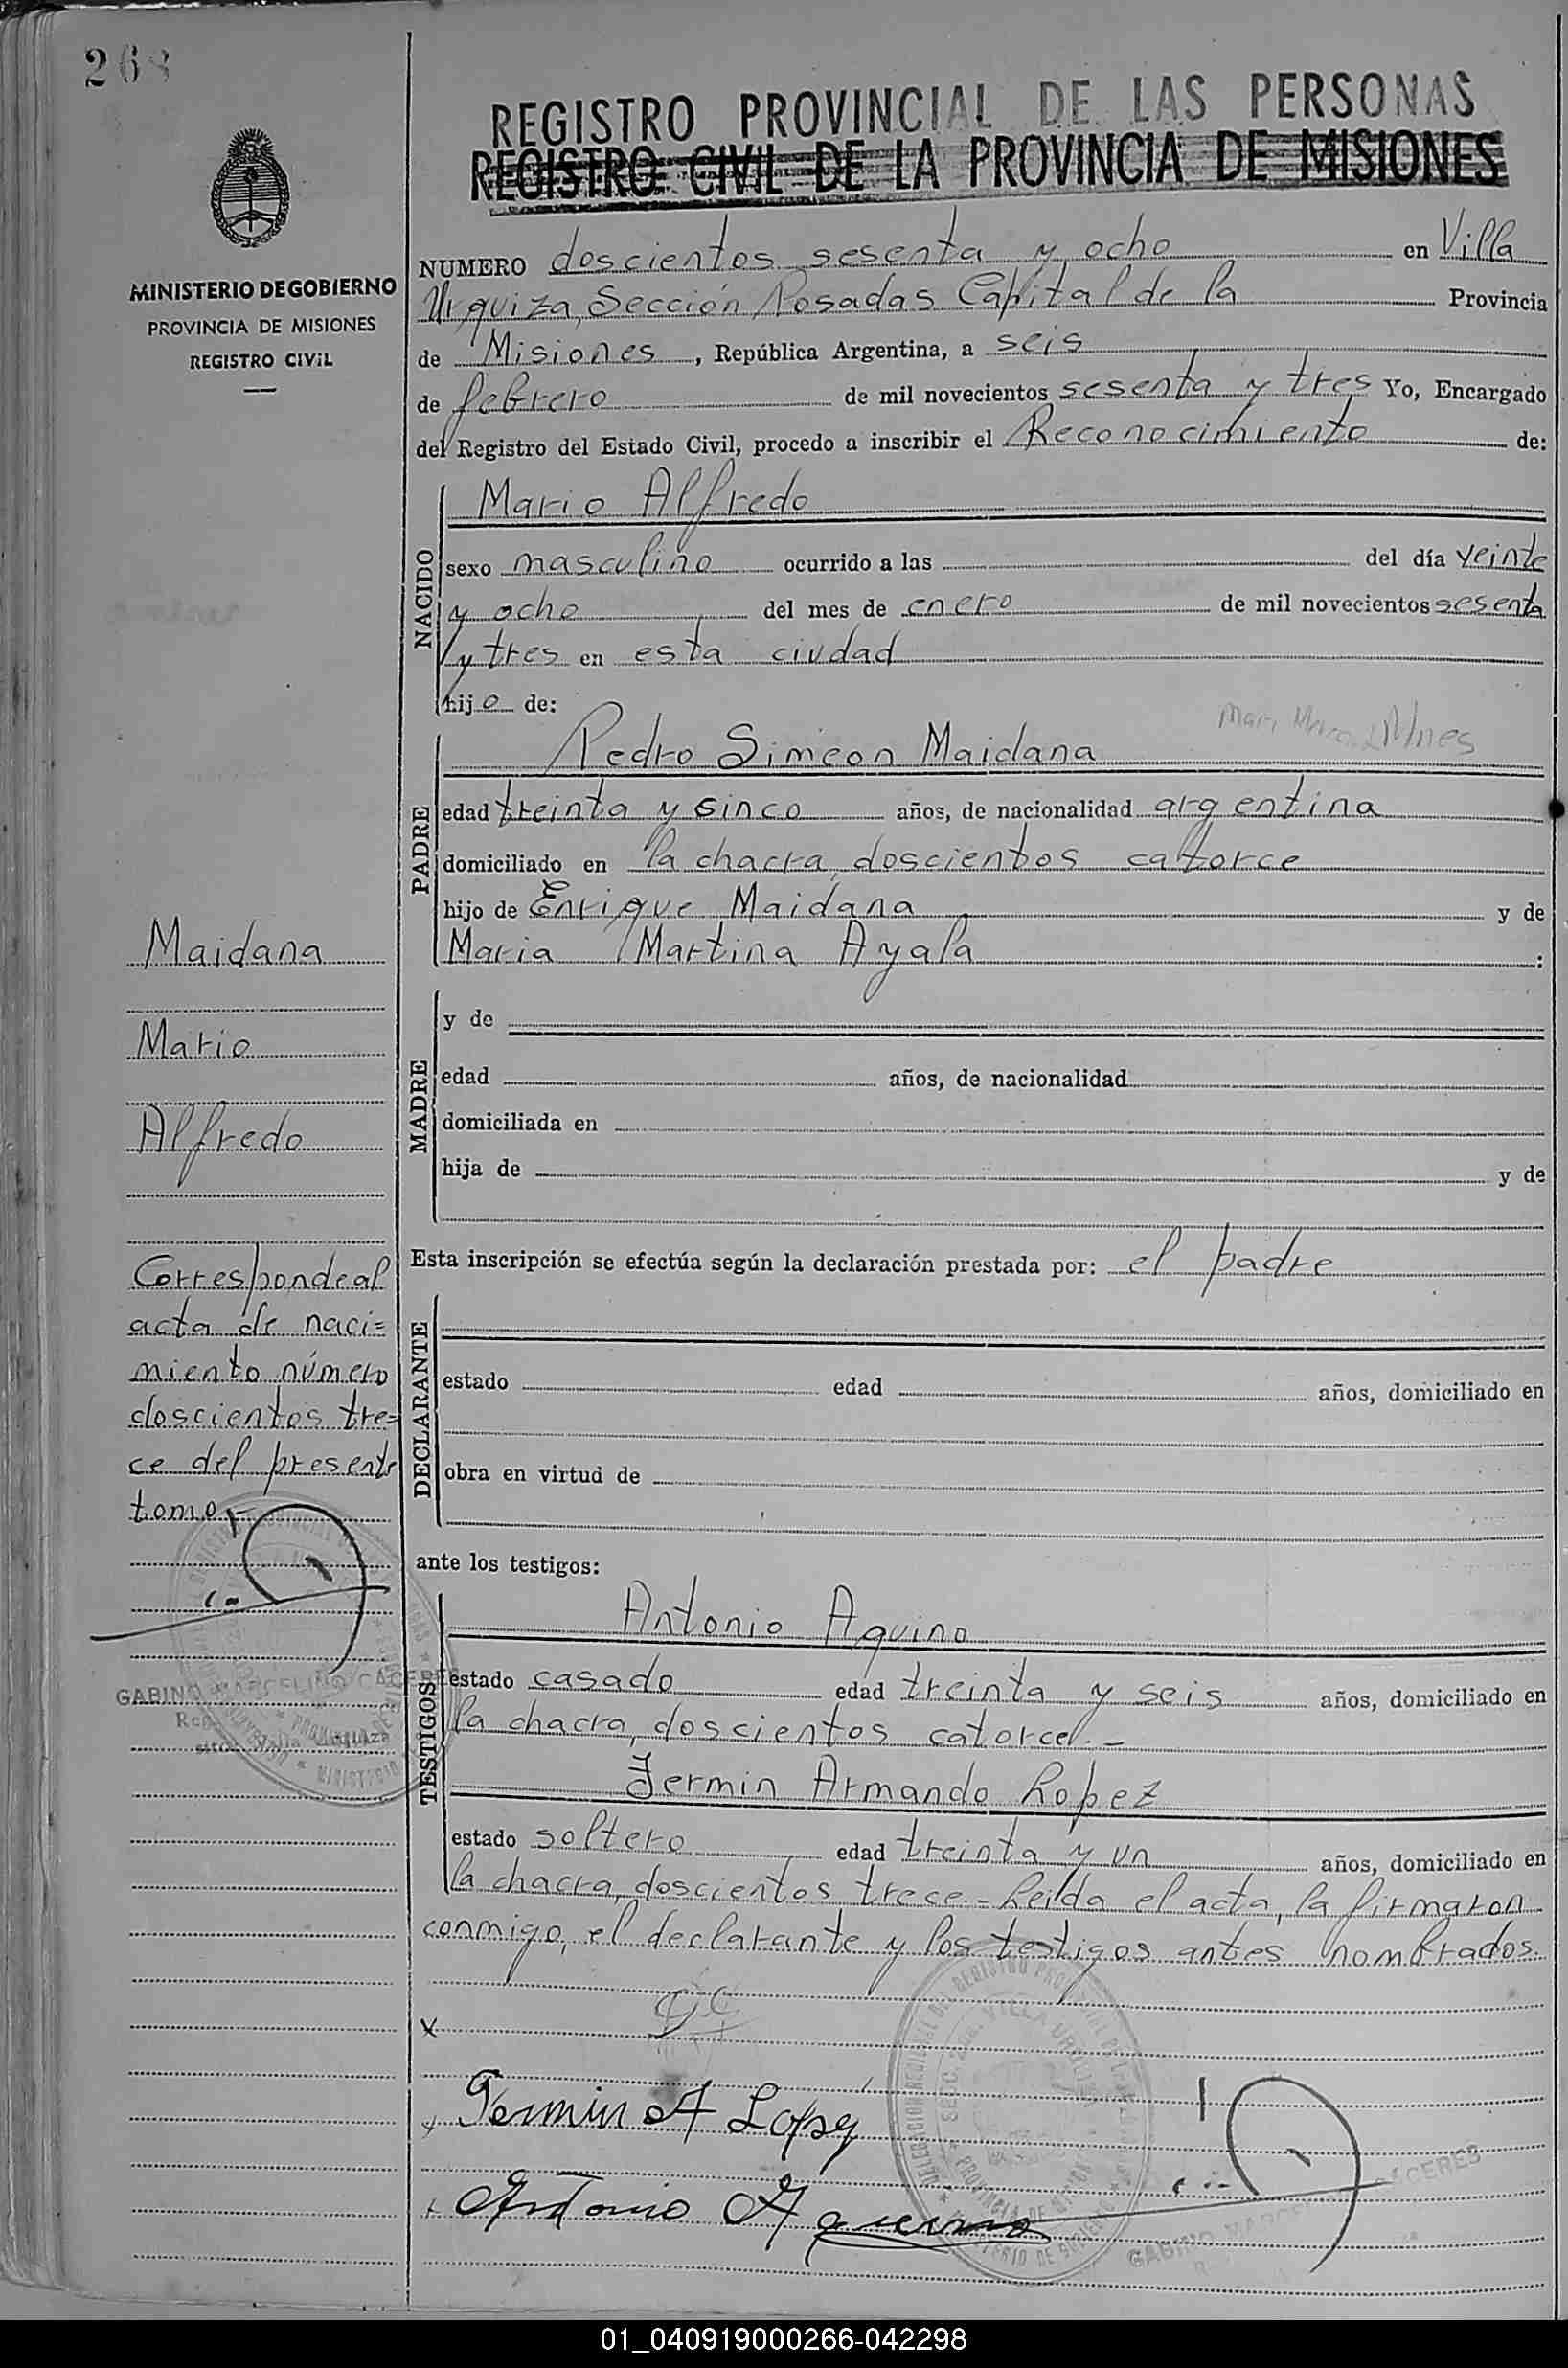 268
REGISTRO PROVINCIAL DE LAS PERSONAS
REGISTRO CIVIL DE LA PROVINCIA DE MISIONES
MINISTERIO DE GOBIERNO
PROVINCIA DE MISIONES
REGISTRO CIVIL
NUMERO doscientos sesenta y ocho en Villa
Urquiza, Sección Posadas Capital de la Provincia
de Misiones, República Argentina, a seis
de febrero de mil novecientos sesenta y tres Yo, Encargado
del Registro del Estado Civil, procedo a inscribir el Reconocimiento de:
NACIDO
Mario Alfredo
sexo masculino ocurrido a las del día veinte
y ocho del mes de enero de mil novecientos sesenta
y tres en esta ciudad
hijo de:
PADRE
Pedro Simeon Maidana
edad treinta y sinco años, de nacionalidad argentina
domiciliado en la chacra, doscientos catorce
hijo de Enrique Maidana y de
Maria Martina Ayala :
MADRE
y de
edad años, de nacionalidad
domiciliada en
hija de y de
Esta inscripción se efectúa según la declaración prestada por: el padre
DECLARANTE
estado edad años, domiciliado en
obra en virtud de
ante los testigos:
TESTIGOS
Antonio Aquino
estado casado edad treinta y seis años, domiciliado en
la chacra, doscientos catorce.-
Fermin Armando Lopez
estado soltero edad treinta y un años, domiciliado en
la chacra, doscientos trece.- Leida el acta, la firmaron
conmigo, el declarante y los testigos antes nombrados.
Maidana
Mario
Alfredo
Corresponde al
acta de naci=
miento número
doscientos tre=
ce del presente
tomo.-
GABINO MARCELINO CACERES
Villa Urquiza
x
Fermin A Lopez
Antonio Aquino
GABINO MARCE CACERES
01_040919000266-042298